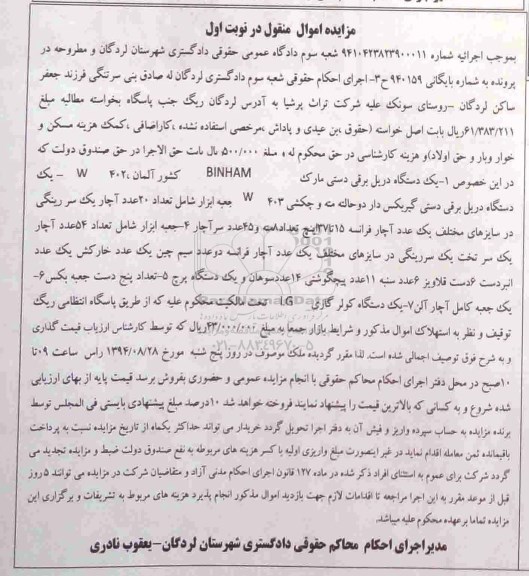 مزایده اموال منقول در نوبت اول
بموجب اجرائیه شماره ۹۴۱۰۴۲۳۸۲۳۹۰۰۰۱۱ شعبه سوم دادگاه عمومی حقوقی دادگستری شهرستان لردگان و مطروحه در
پرونده به شماره بایگانی ۹۴۰۱۵۹ ح۳-اجرای احکام حقوقی شعبه سوم دادگستری لردگان له صادق بنی سرتنگی فرزند جعفر
ساکن لردگان -روستای سونک علیه شرکت تراث پرشیا به آدرس لردگان ریگ جنب پاسگاه بخواسته مطالبه مبلغ
۶۱/۳۸۳/۲۱۱ریال بابت اصل خواسته (حقوق ،بن عیدی و پاداش ،مرخصی استفاده نشده ،کاراضافی ،کمک هزینه مسکن و
خوار وبار و حق اولاد)و هزینه کارشناسی در حق محکوم له و مبلغ ۵۰۰/۰۰۰ ریال بابت حق الاجرا در حق صندوق دولت که
در این خصوص ۱-یک دستگاه دریل برقی دستی مارک BINHAM کشور آلمان ،۴۰۲ W - یک
دستگاه دریل برقی دستی گیربکس دار دوحالته مته و چکشی ۴۰۳ W جعبه ابزار شامل تعداد ۲۰عدد آچار یک سر رینگی
در سایزهای مختلف یک عدد آچار فرانسه ۱۵تا۳۷اینچ تعداد و۴۵عدد سرآچار ۴-جعبه ابزار شامل تعداد ۵۴عدد آچار
یک سر تخت یک سررینگی در سایزهای مختلف یک عدد آچار فرانسه دوعدد سیم چین یک عدد خارکش یک عدد
انبردست ۶دست قلاویز ۶عدد سنبه ۱۱عدد پیچگوشتی ۱۴عددسوهان و یک دستگاه پرچ ۵-تعداد پنج دست جعبه بکس۶-
یک جعبه کامل آچار آلن۷-یک دستگاه کولر گازی LG تحت مالکیت محکوم علیه که از طریق پاسگاه انتظامی ریگ
توقیف و نظر به استهلاک اموال مذکور و شرایط بازار جمعا به مبلغ ۲۳/۰۰۰/۰۰۰ریال که توسط کارشناس ارزیاب قیمت گذاری
و به شرح فوق توصیف اجمالی شده است. لذا مقرر گردیده ملک موصوف در روز پنج شنبه مورخ ۱۳۹۴/۰۸/۲۸ راس ساعت ۰۹تا
۱۰صبح در محل دفتر اجرای احکام محاکم حقوقی با انجام مزایده عمومی و حضوری بفروش برسد قیمت پایه از بهای ارزیابی
شده شروع و به کسانی که بالاترین قیمت را پیشنهاد نمایند فروخته خواهد شد ۱۰درصد مبلغ پیشنهادی بایستی فی المجلس توسط
برنده مزایده به حساب سپرده واریز و فیش آن به دفتر اجرا تحویل گردد خریدار می تواند حداکثر یکماه از تاریخ مزایده نسبت به پرداخت
باقیمانده ثمن معامله اقدام نماید در غیر اینصورت مبلغ واریزی اولیه با کسر هزینه های مربوطه به نفع صندوق دولت ضبط و مزایده تجدید می
گردد شرکت برای عموم به استثنای افراد ذکر شده در ماده ۱۲۷ قانون اجرای احکام مدنی آزاد و متقاضیان شرکت در مزایده می توانند ۵روز
قبل از موعد مقرر به این اجرا مراجعه تا اقدامات لازم جهت بازدید اموال مذکور انجام پذیرد هزینه های مربوط به تشریفات و برگزاری این
مزایده تماما برعهده محکوم علیه میباشد.
مدیراجرای احکام محاکم حقوقی دادگستری شهرستان لردگان-یعقوب نادری